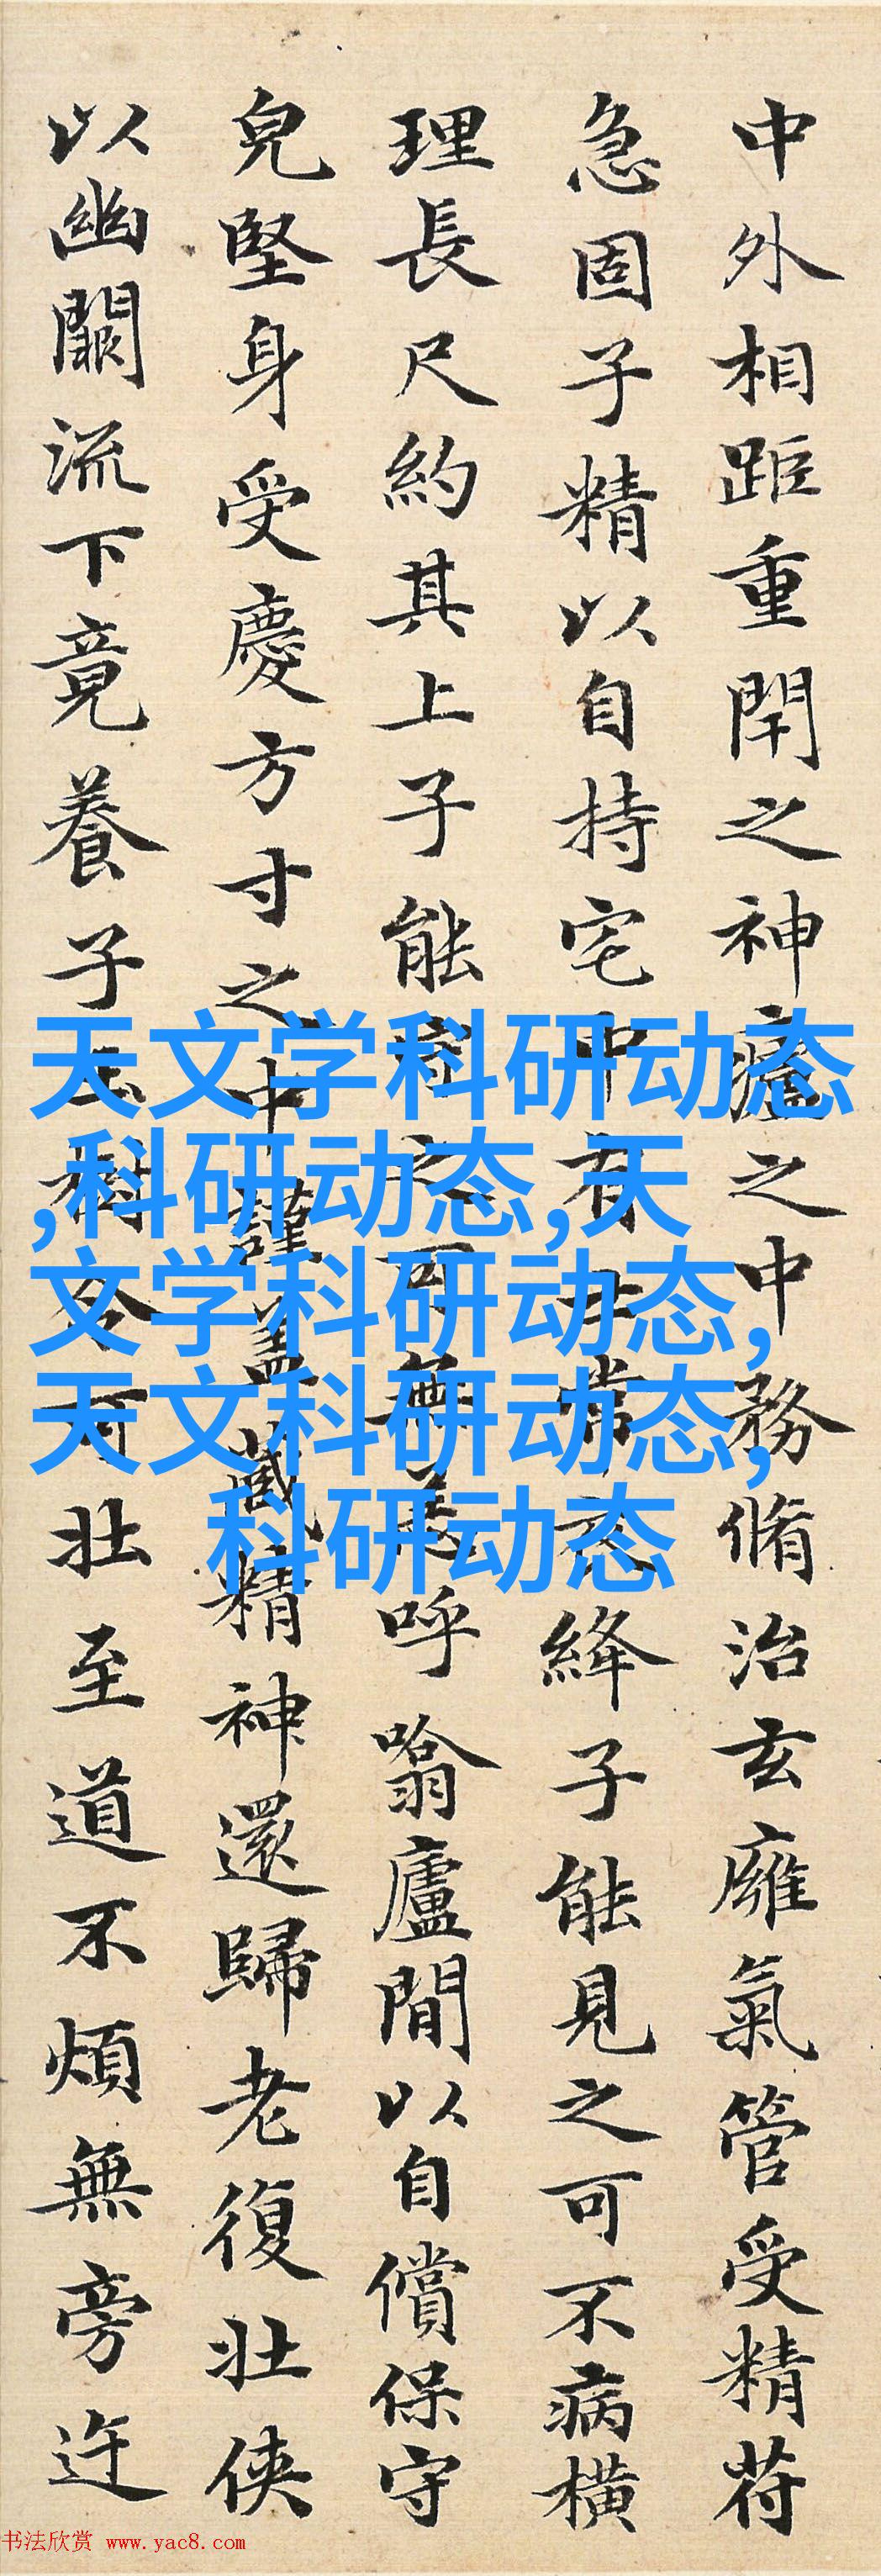 中外相距重閇之神廬之中務脩治玄癰氣管受精苻
急固子精以自持宅中有士常衣絳子能見之可不病橫
理長尺約其上子能守之可無恙呼噏廬間以自償保守
皃堅身受慶方寸之中謹蓋藏精神還歸老復壯俠
以幽闕流下竟養子玉樹令可壯至道不煩無旁迕
天文学科研动态
,科研动态,天
文学科研动态,
天文科研动态,
科研动态
书法欣赏 www.yac8.com